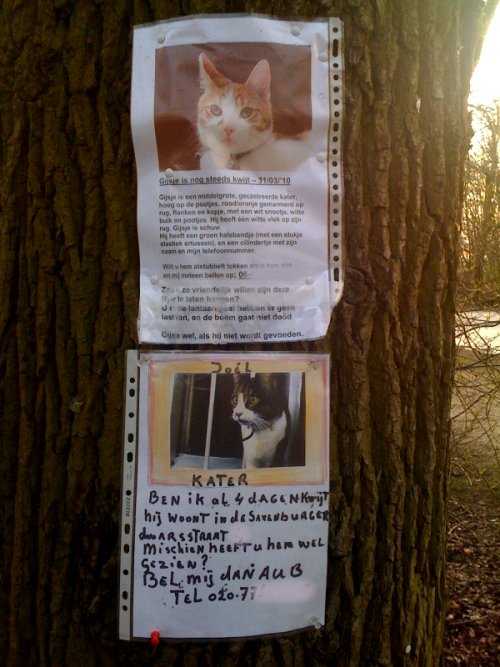 Gijsje is nog steeds kwijt – 31/03/'10
Gijsje is een middelgrote, gecastreerde kater,
hoog op de pootjes, rood/oranje gemarmerd op
rug, flanken en kopje, met een wit snoetje, witte
buik en pootjes. Hij heeft één witte vlek op zijn
rug. Gijsje is schuw.
Hij heeft een groen halsbandje (met een stukje
elastiek ertussen), en een cilindertje met zijn
naam en mijn telefoonnummer.
Wilt u hem alstublieft lokken als u hem ziet
en mij meteen bellen op; 06-
Zou u zo vriendelijk willen zijn deze
flyer te laten hangen?
U noch de lantaarnpaal hebben er geen
last van, en de boom gaat niet dood
Gijsje wel, als hij niet wordt gevonden.
Joël
KATER
BEN ik al 4 DAGEN KWijt
hij WOONT in de SAEENBURGER
dwARSSTRAAT
Mischien HEEFT u hem WEL
GEZIEN?
BEL mij dAN AUB
TEL 020.77